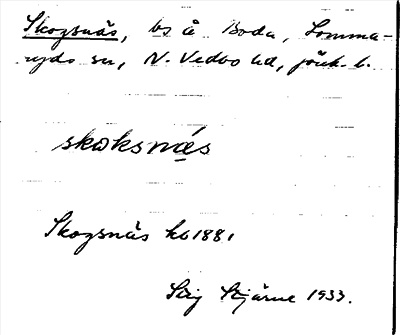 Skogsnäs, bs å Boda, Lomma-
ryds sn, N. Vedbo hd, jönk. l.
skoksnäs
Skogsnäs hb 1881
Stig Stjärne 1933.